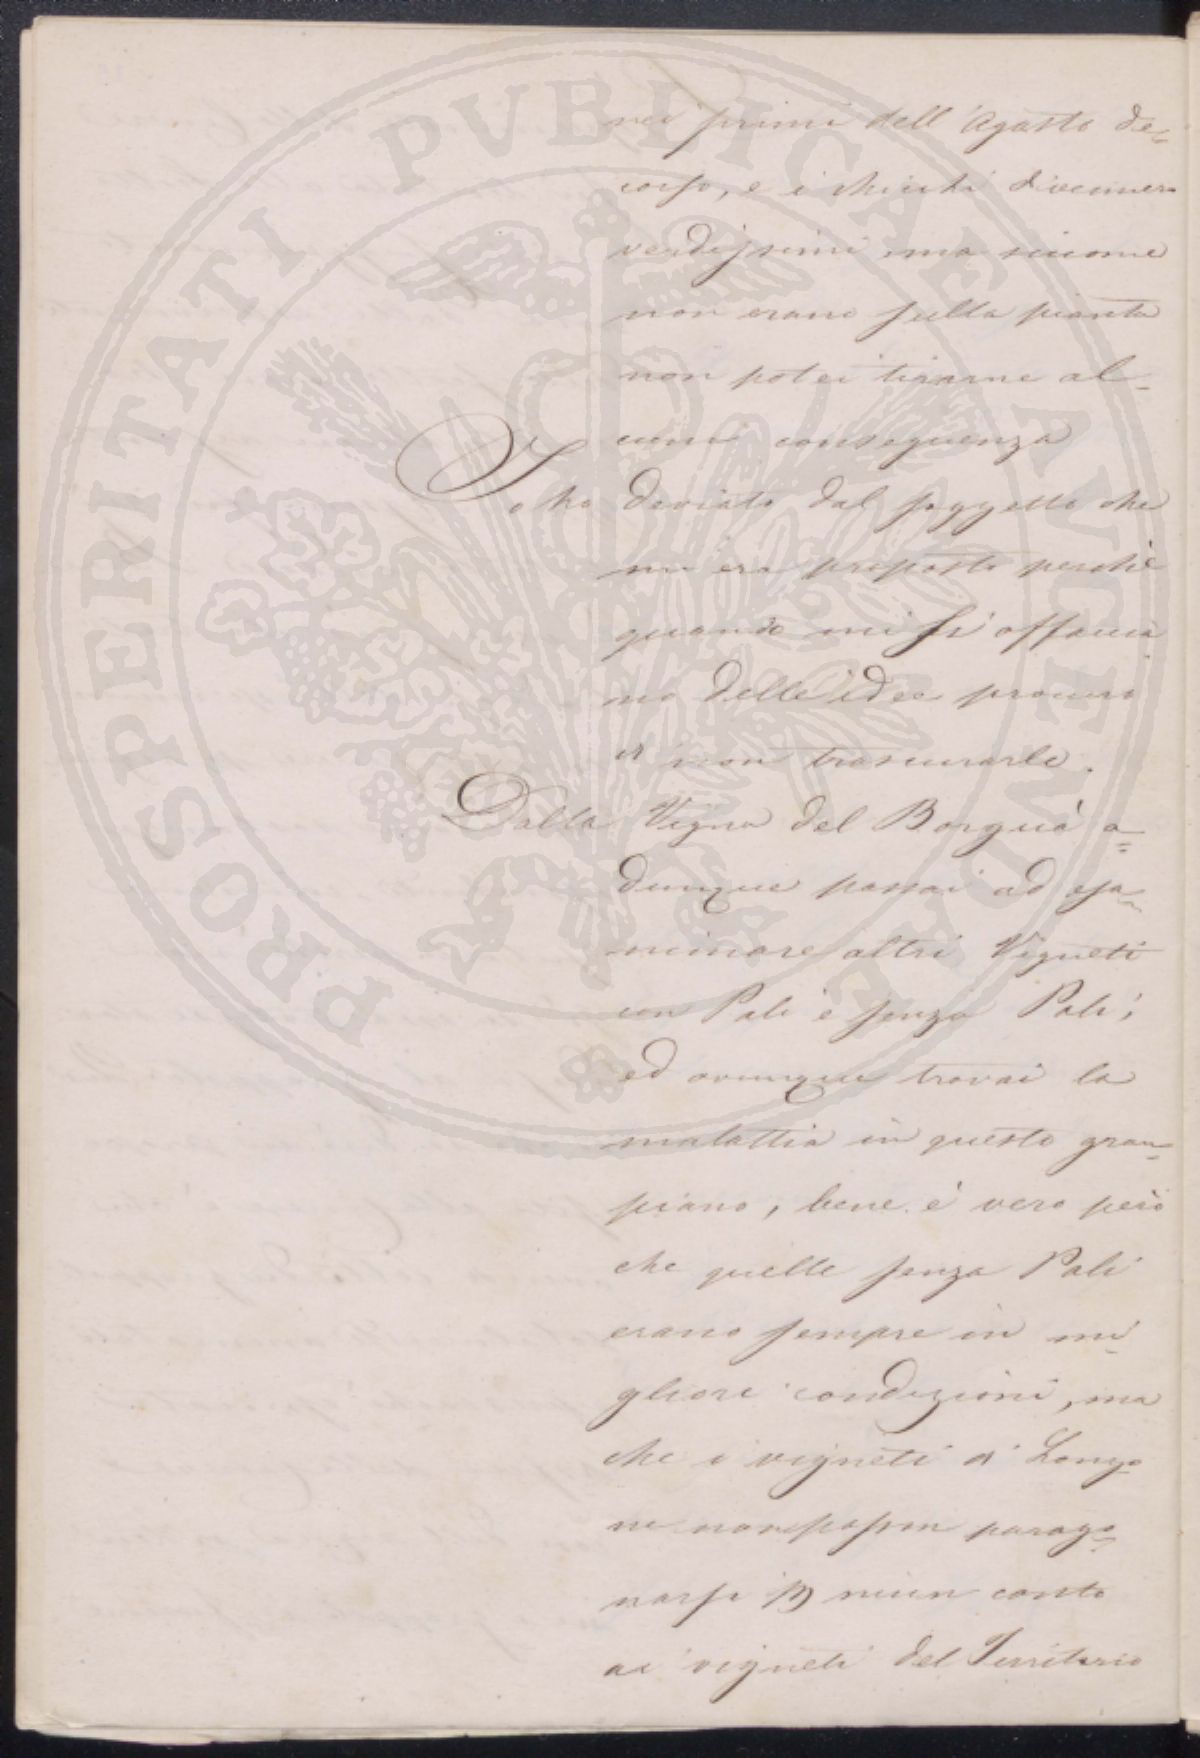 nei primi dell'Agosto de=
corso, e i chicchi divennero
verdissimi, ma siccome
non erano sulla pianta
non potei tirarne al=
cuna conseguenza
Io ho deviato dal soggetto che
mi era proposto perchè
quando mi si affaccia
no delle idee procuro
di non trascurarle.
Dalla Vigna del Borguà a=
dunque passai ad esa=
minare altri Vigneti
con Pali e senza Pali;
ed ovunque trovai la
malattia in questo gran=
piano, bene è vero però
che quelle senza Pali
erano sempre in mi=
gliori condizioni, ma
che i vigneti di Longo
ne non posson parago=
narsi p niun conto
ai vigneti del Territorio
PROSPERITATI PVBLICAE AVGENDAE